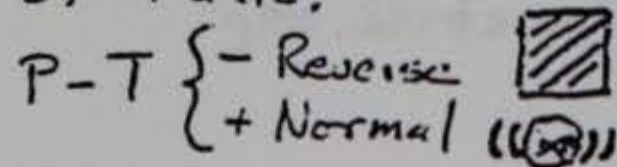 P-T { - Reverse
+ Normal